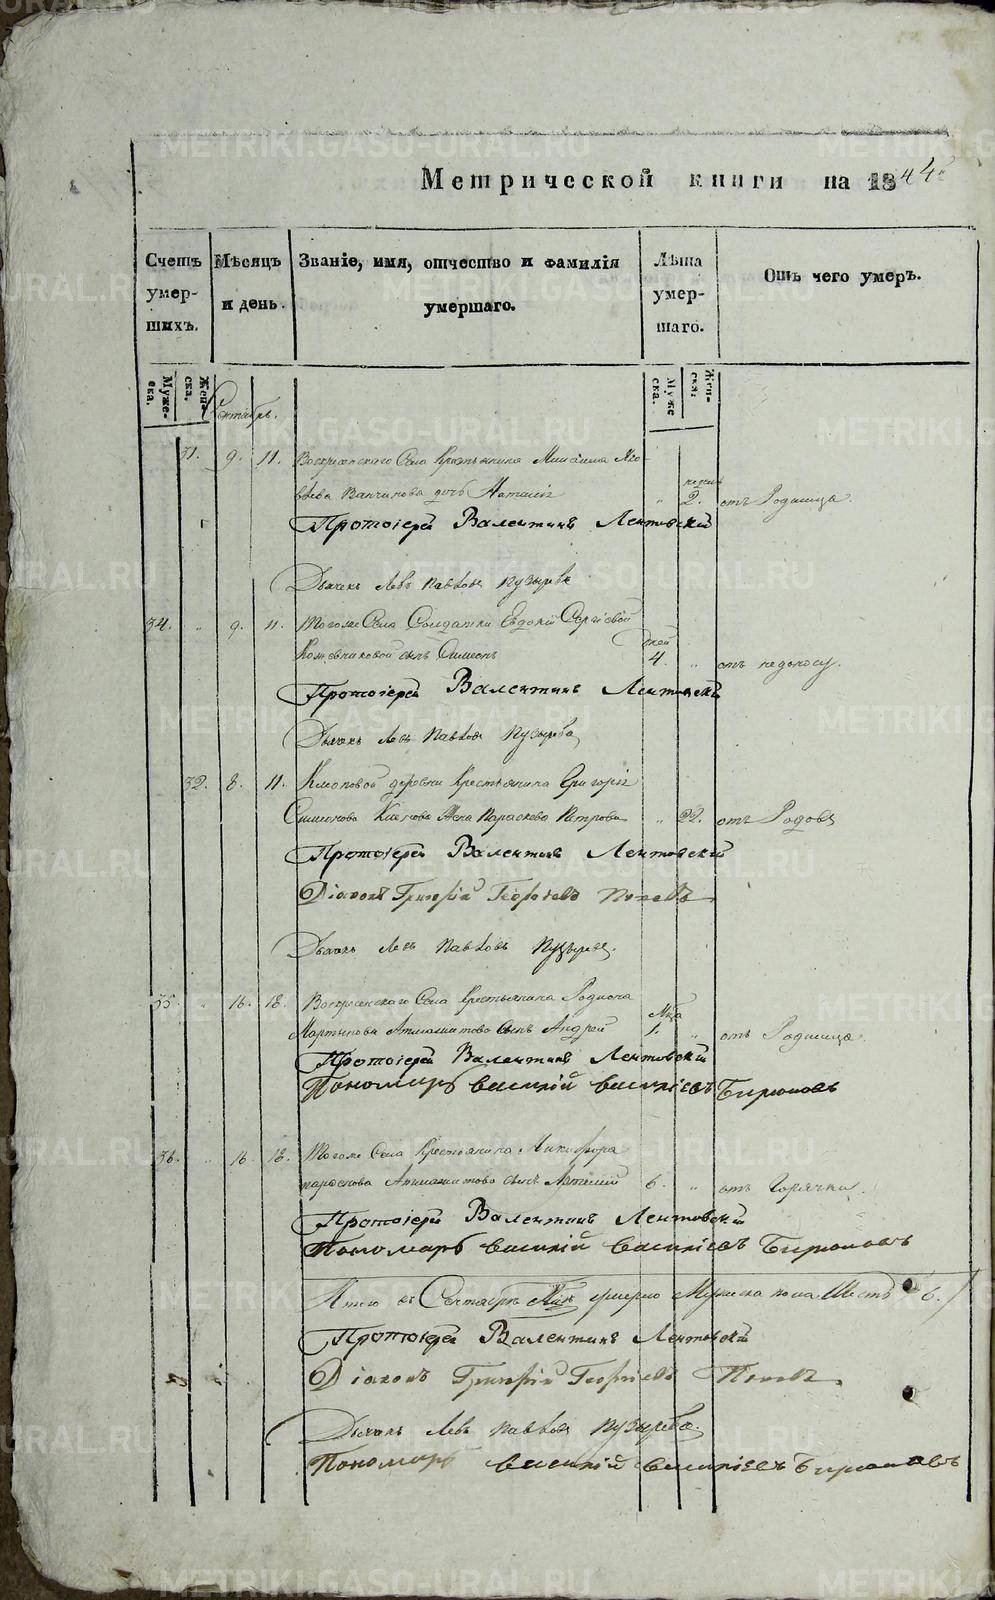 Метрической книги на 1844
Счетъ умер-шихъ.
Мѣсяцъ и день.
Званіе, имя, отчество и фамилія умершаго.
Лѣта умер-шаго.
Отъ чего умеръ.
Муже-ска.
Жен-ска.
Муже-ска.
Жен-ска.
Сентябрь.
31. 9. 11. Воскресенскаго Села Крестьянина Михаила
дочь Наталія " недель 2. отъ Родимца.
Протоіерей Валентинъ Лентовскій
Дьячекъ Левъ Павловъ Пузыревъ
34. " 9. 11. Тогоже Села Солдатки Евдокіи Сергіевой
Кожевниковой сынъ Симеонъ дней 4. " отъ недоносу.
Протоіерей Валентинъ Лентовскій
Дьячекъ Левъ Павловъ Пузыревъ
32. 8. 11. Клюповой деревни Крестьянина Григорія
Симеонова Жена Параскева Петрова " 22. отъ Родовъ
Протоіерей Валентинъ Лентовскій
Діаконъ Григорій Георгіевъ Поповъ
Дьячекъ Левъ Павловъ Пузыревъ
35. " 16. 18. Воскресенскаго Села Крестьянина Родіона
Мартынова сынъ Андрей Мца 1. " отъ Родимца.
Протоіерей Валентинъ Лентовскій
Пономарь Василій Василіевъ Бирюковъ
36. " 16. 18. Тогоже Села Крестьянина Никифора
сынъ 6. " отъ Горячки.
Протоіерей Валентинъ Лентовскій
Пономарь Василій Василіевъ Бирюковъ
Итого въ Сентябрѣ Мцѣ умерло Мужеска пола Шесть 6.
Протоіерей Валентинъ Лентовскій
Діаконъ Григорій Георгіевъ Поповъ
Дьячекъ Левъ Павловъ Пузыревъ
Пономарь Василій Василіевъ Бирюковъ
METRIKI.GASO-URAL.RU